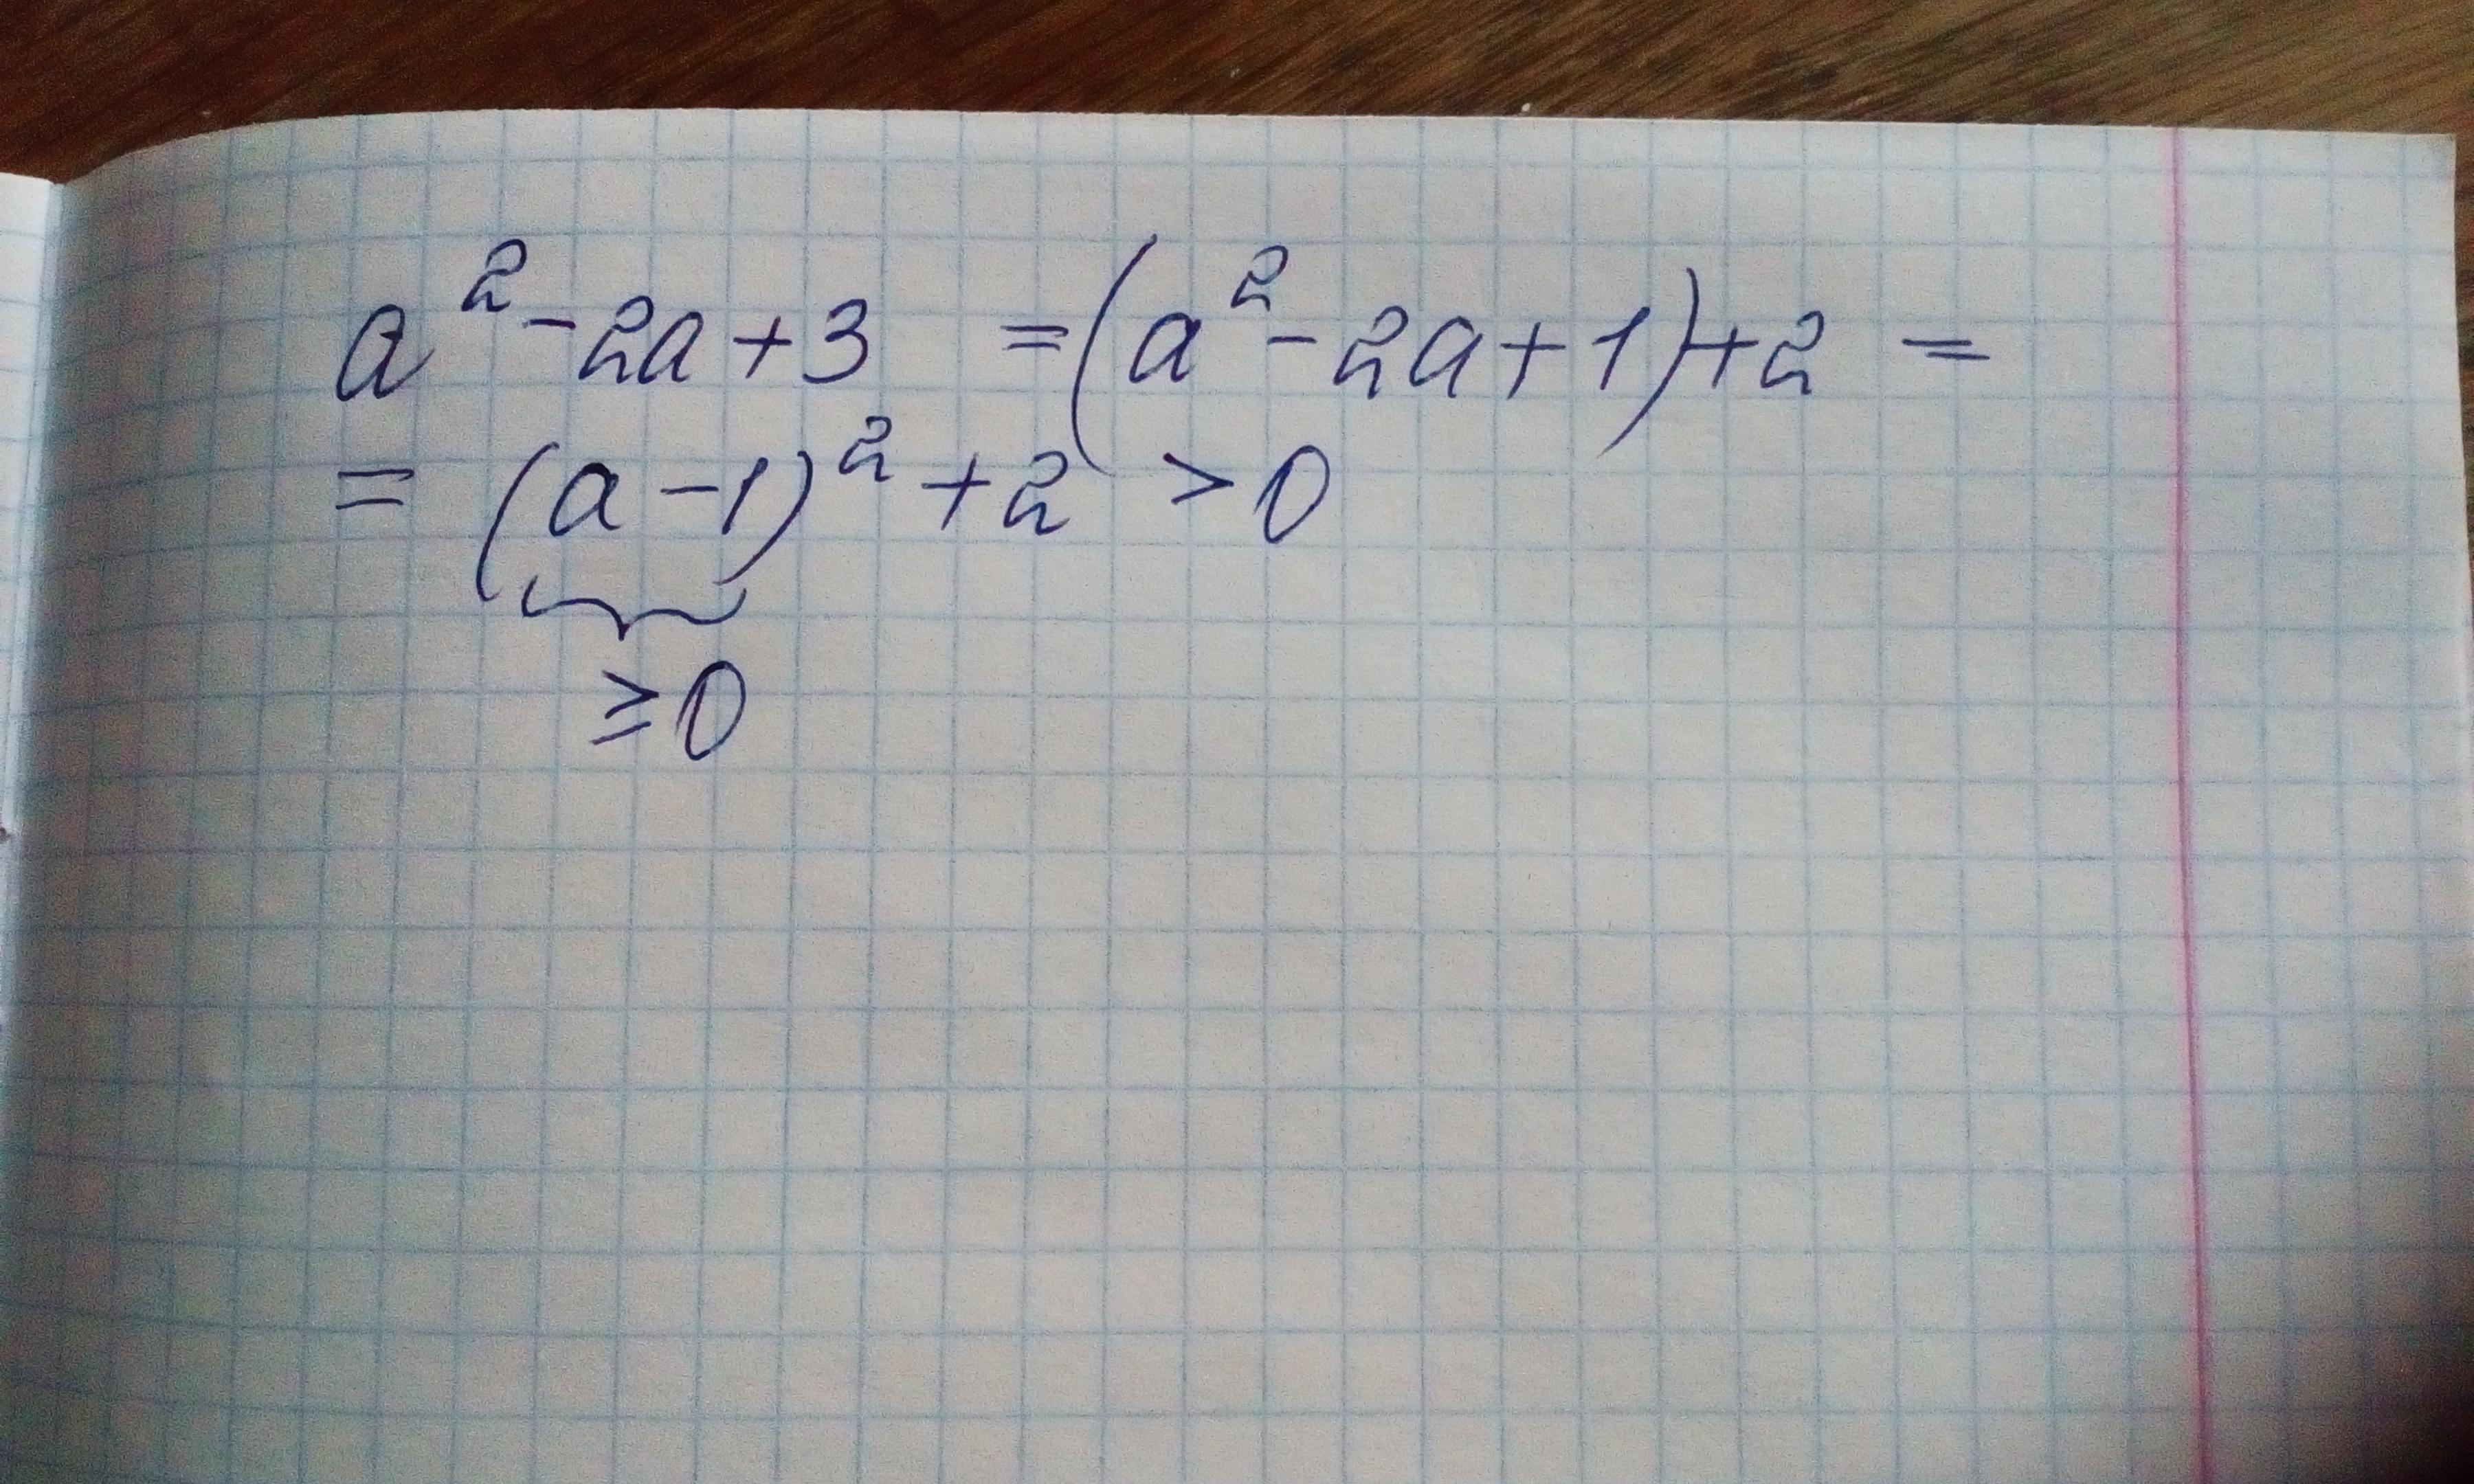 a² - 2a + 3 = (a² - 2a + 1) + 2 =
= (a - 1)² + 2 > 0
≥ 0